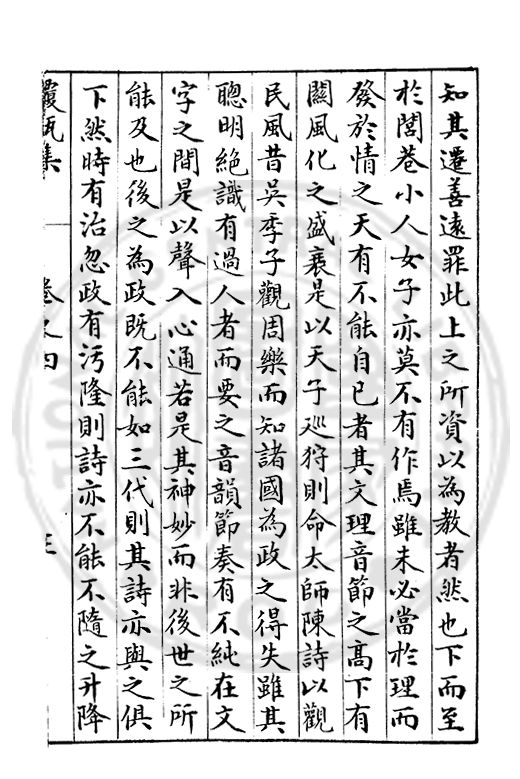 知其遷善遠罪此上之所資以為教者然也下而至
於閭巷小人女子亦莫不有作焉雖未必當於理而
發於情之天有不能自已者其文理音節之高下有
關風化之盛衰是以天子廵狩則命太師陳詩以觀
民風昔吳季子觀周樂而知諸國為政之得失雖其
聰明絶識有過人者而要之音韻節奏有不純在文
字之間是以聲入心通若是其神妙而非後世之所
能及也後之為政既不能如三代則其詩亦與之俱
下然時有治忽政有汚隆則詩亦不能不隨之升降
覆瓿集
卷之四